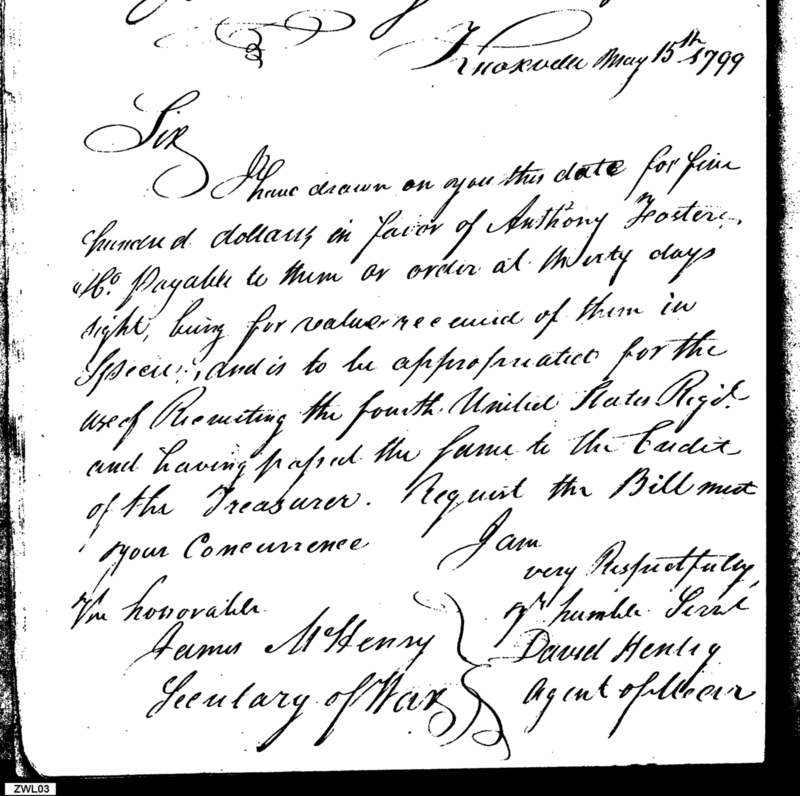 Knoxville May 15th 1799
Sir
I have drawn on you this date for five
hundred dollars in favor of Anthony Foster
& Co. Payable to them or order at thirty days
sight, being for value received of them in
Specie, and is to be appropriated for the
use of Recruiting the fourth United States Regt.
and having passed the same to the Credit
of the Treasurer. Request the Bill meet
your Concurrence
I am
very Respectfully,
Yr humble Servt
The honorable
James McHenry
Secretary of War
David Henley
Agent of War
ZWL03